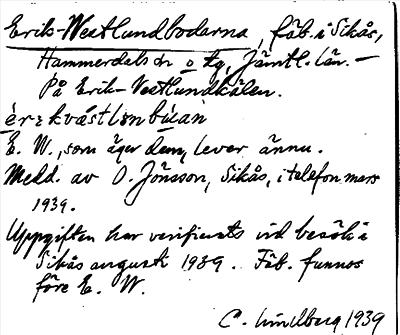 Erik-Westlundbodarna, fäb. i Sikås,
Hammerdals sn o tg, Jämtl. län. —
På Erik-Vestlundkälen.
E. W., som äger dem, lever ännu.
Medd. av O. Jönsson, Sikås, i telefon mars
1939.
Uppgiften har verifierats vid besök i
Sikås augusti 1939. Fäb. funnos
före E. W.
C. Lindberg 1939